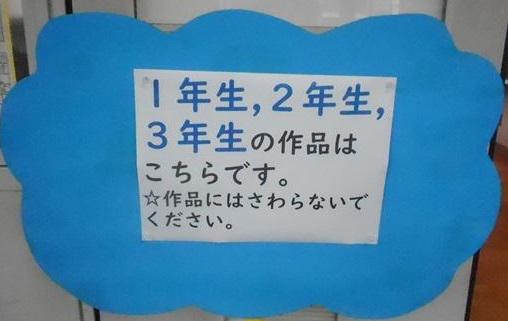 1年生,2年生,
3年生の作品は
こちらです。
☆作品にはさわらないで
ください。